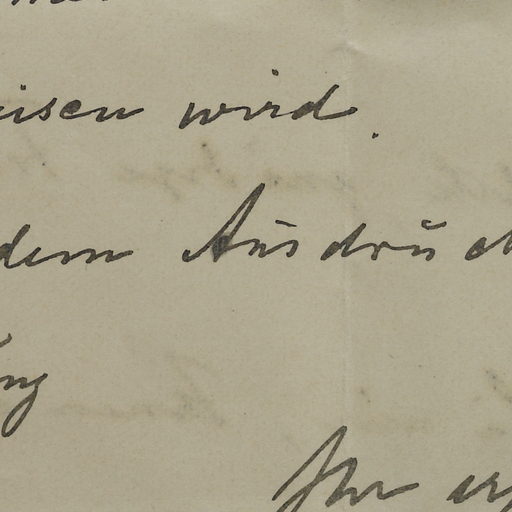 eisen wird.
dem Ausdruck
ng
Ihr